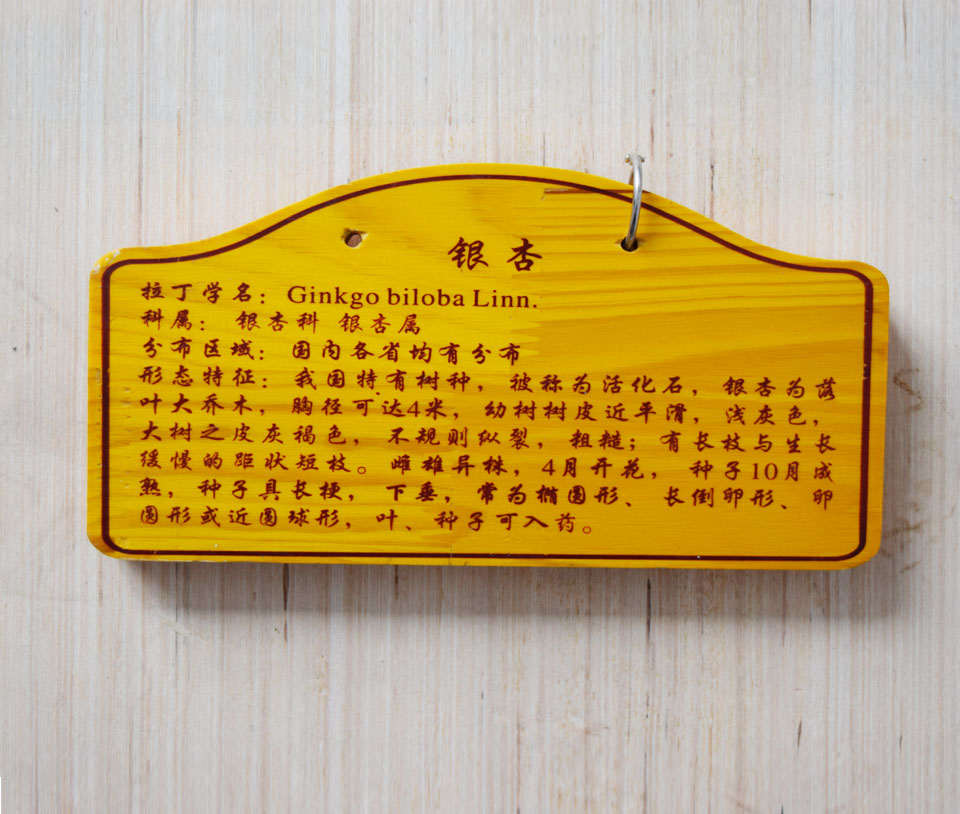 银杏
拉丁学名：Ginkgo biloba Linn.
科属： 银杏科 银杏属
分布区域：国内各省均有分布
形态特征：我国特有树种，被称为活化石，银杏为落
叶大乔木，胸径可达4米，幼树树皮近平滑，浅灰色，
大树之皮灰褐色，不规则纵裂，粗糙；有长枝与生长
缓慢的距状短枝。雌雄异株，4月开花，种子10月成
熟，种子具长梗，下垂，常为椭圆形、长倒卵形、卵
圆形或近圆球形，叶、种子可入药。